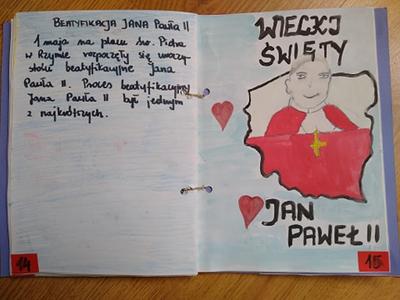 BEATYFIKACJA JANA PAWŁA II
1 maja na placu św. Piotra
w Rzymie rozpoczęły się uroczy-
stości beatyfikacyjne Jana
Pawła II. Proces beatyfikacyjny
Jana Pawła II był jednym
z najkrótszych.
14
WIELKI
ŚWIĘTY
JAN
PAWEŁ II
15